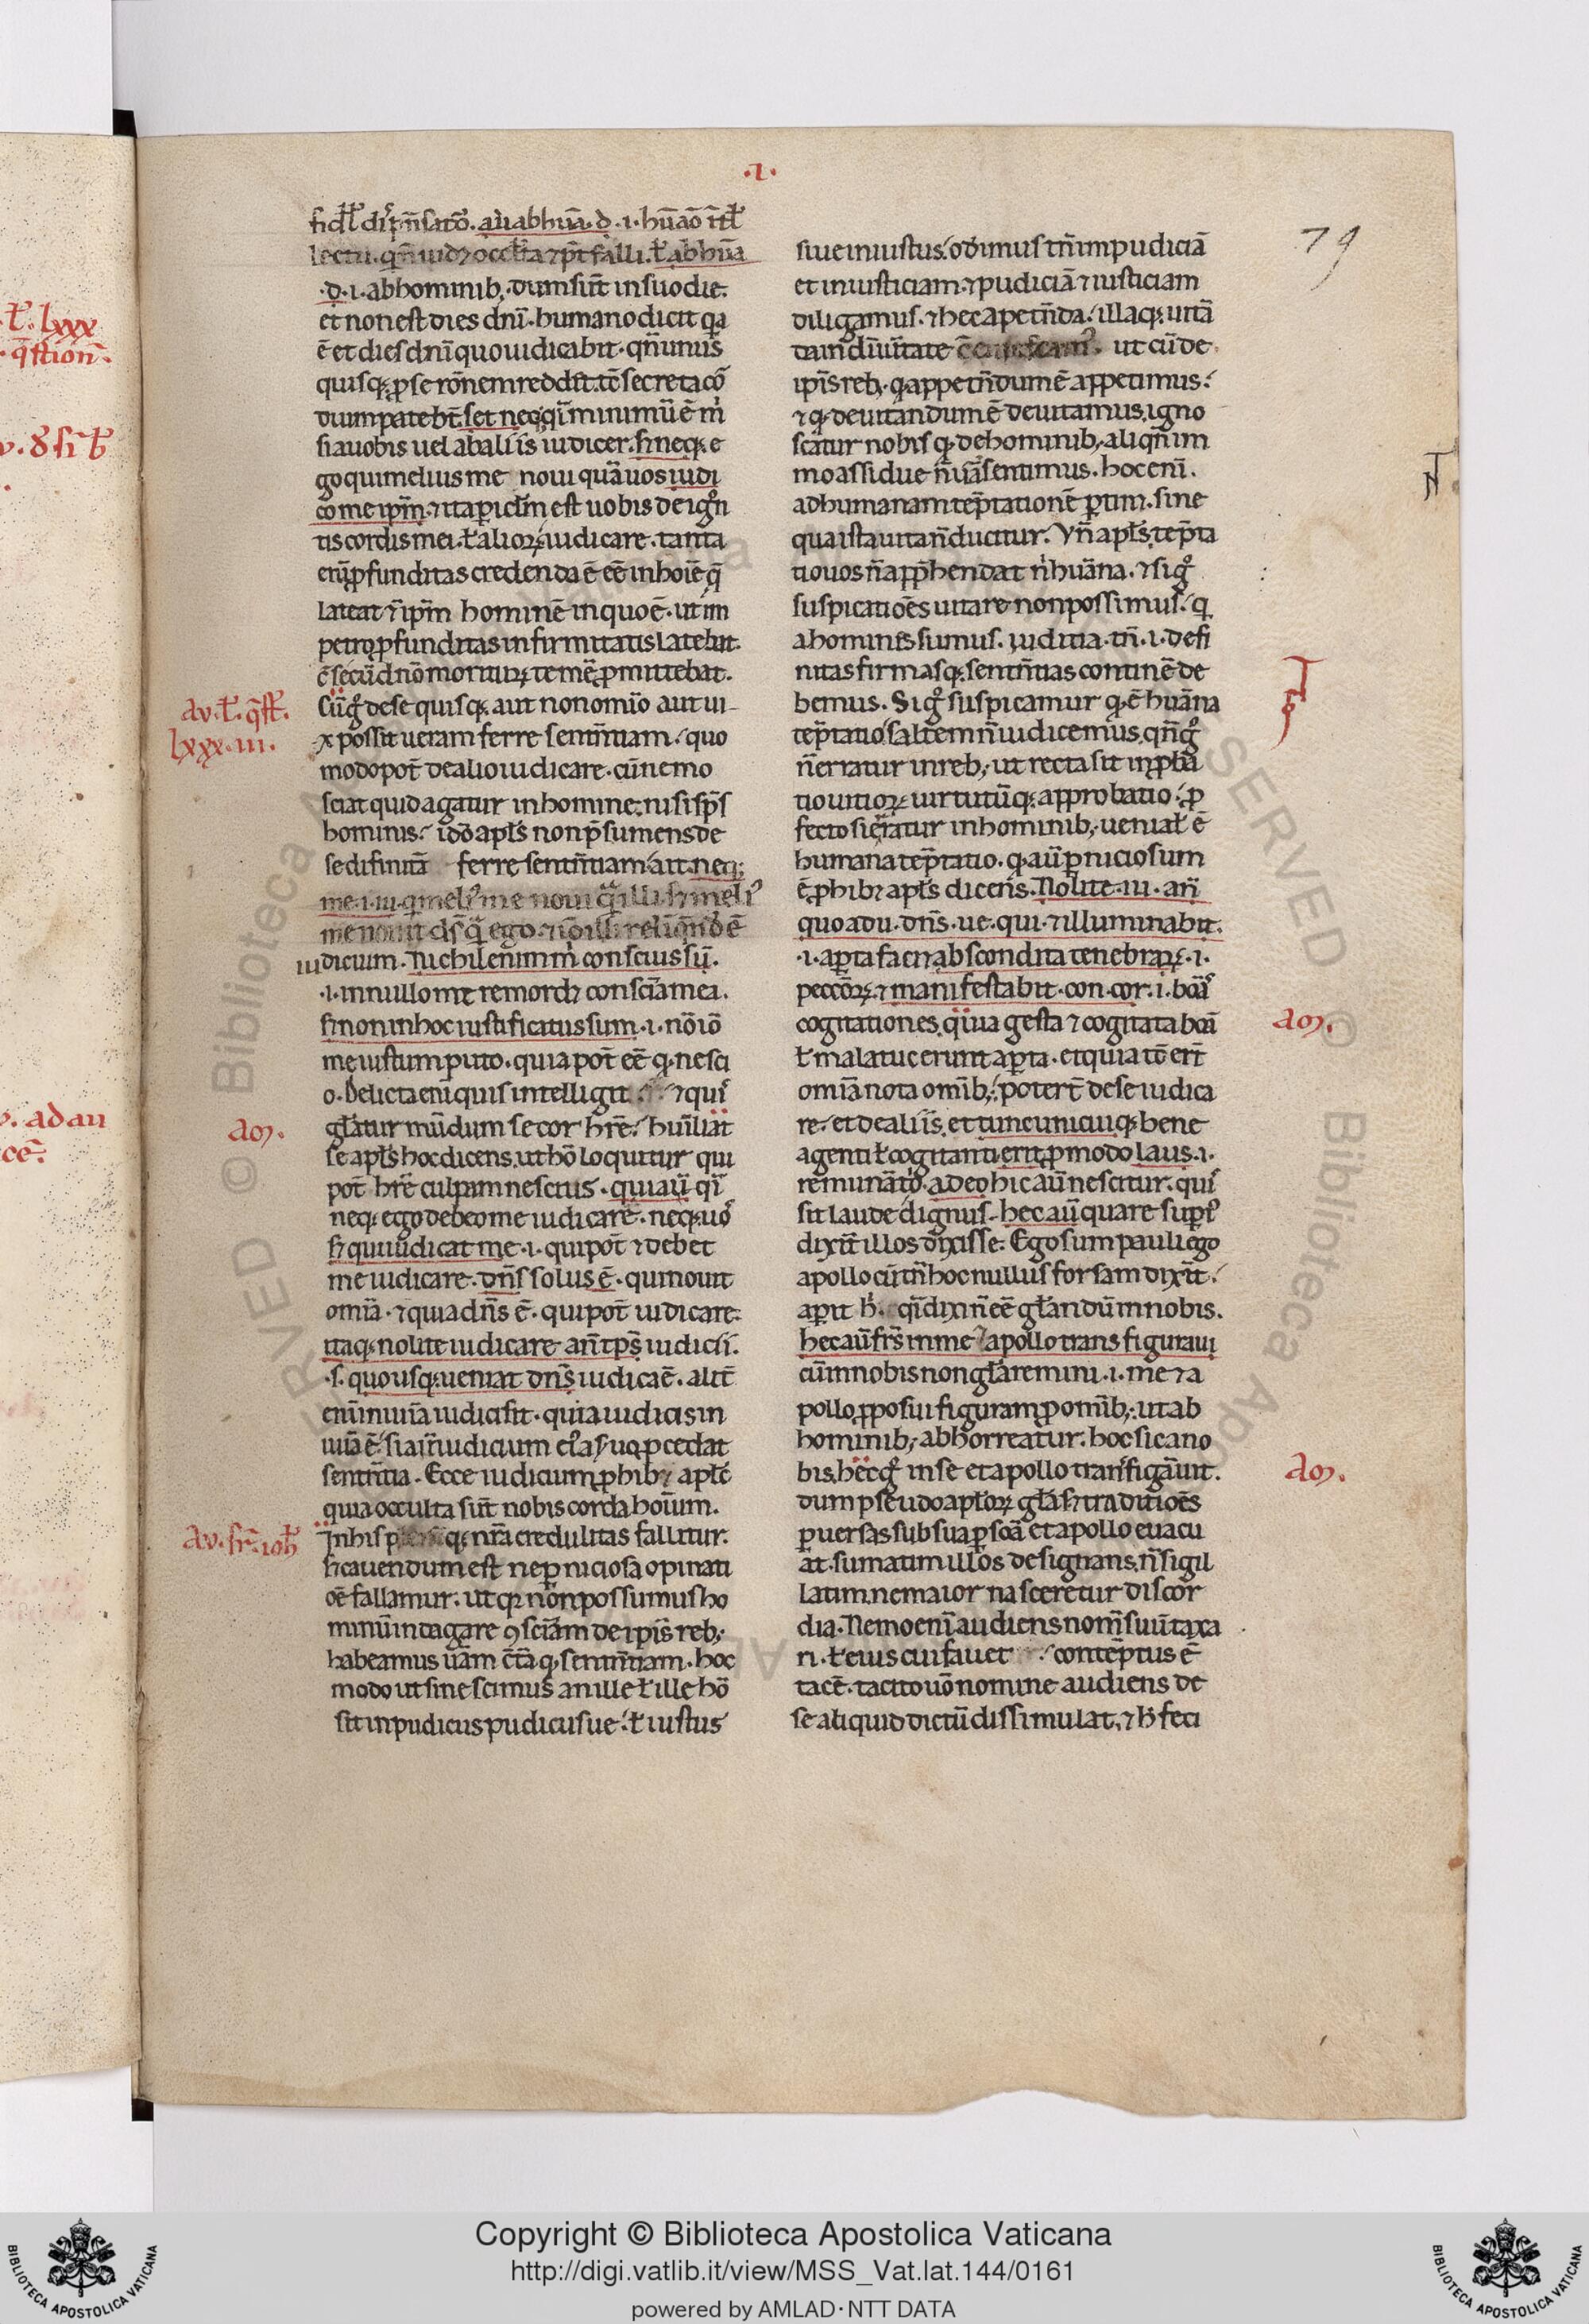 .I.
79
lectu. qn̄ iudꝫ occlta ⁊ pt̄ falli. ł ab huā
.d.i. ab hominibꝫ. dum sūt in suo die.
et non est dies dnī. humano dicit qa
ē et dies dnī quo iudicabit. qn̄ unus
quisqꝫ ꝑ se rōnem reddet. tc̄ secreta cō
dium patebt̄. set neqꝫ qī minimū ē m̄
si a uobis uel ab aliis iudicer. sꝫ neqꝫ e
go qui melius me noui quā uos iudi
co me ipm̄. ⁊ ita ꝑiclm̄ est uobis de ignͦ
tis cordis mei. ł alioꝝ iudicare. tanta
eni ꝓfunditas credenda ē eē in hoīe q̄
lateat ⁊ ipm̄ hominē in quo ē. ut im
petro ꝓfunditas infirmitatis latebat.
c̄ secū dnō moriturꝝ temē ꝓmittebat.
av. ł. q̄st.
lxxx.iii.
Cū gͦ de se quisqꝫ aut non omīo aut ui-
x possit ueram ferre sentn̄tiam. quo
modo pot̄ de alio iudicare. cū nemo
sciat quid agatur in homine. nisi sp̄s
hominis. idō apls̄ non p̄sumens de
se difinitā ferre sentn̄tiam. ait. neqꝫ
me.i.iu. q meliꝰ me noui q̄ illi. sꝫ meliꝰ
me nouit ds̄ q̄ ego. ⁊
iudicium. Nichil enim m̄ conscius sū.
.i. in nullo me remordꝫ consciā mea.
sꝫ non in hoc iustificatus sum .i. nō iō
me iustum puto. quia pot̄ eē qꝫ nesci
o. Delicta enī quis intelligit. ⁊ quiͥ
am.
glātur mūdum se cor hrē. huīliat
se apls̄ hoc dicens. ut hō loquitur qui
pot̄ hrē culpam nescius. quia ū qī
neqꝫ ego debeo me iudicare. neqꝫ uoͦ
sꝫ qui iudicat me .i. qui pot̄ ⁊ debet
me iudicare. dn̄s solus ē. qui nouit
omīa. ⁊ quia dn̄s ē. qui pot̄ iudicare.
itaqꝫ nolite iudicare an̄ tp̄s iudicii.
.s. quousqꝫ ueniat dn̄s iudicaē. alit̄
enī iniuīa iudicis fit. quia iudicis in
iuīa ē. si an̄ iudicium eiꝰ a suo ꝓcedat
sentn̄tia. Ecce iudicium ꝓhibꝫ aplc̄
quia occulta sūt nobis corda hoīum.
av. sr̄. ioħ
In his qꝫ nrā credulitas fallitur.
sꝫ cauendum est ne ꝑniciosa opinati
oē fallamur. ut qꝫ non possumus ho
minū indagare ꝯsciām de ipis̄ rebꝫ
habeamus uām c̄tā qꝫ sentn̄tiam. hoc
modo ut sine scimus an ille ł ille hō
sit inpudicus pudicusue. ł iustus
siue iniustus. odimus tn̄ impudiciā
et iniusticiam. ⁊ pudiciā ⁊ iusticiam
diligamus. ⁊ hec apetn̄da. illaqꝫ uitā
da in diuītate ē ut cū de
ipis̄ rebꝫ. qꝫ appetn̄dum ē appetimus.
⁊ qꝫ deuitandum ē deuitamus. igno
scatur nobis qꝫ de hominibꝫ aliqn̄ im
mo assidue n̄ uā sentimus. hoc enī.
ad humanam tep̄tationē ꝑtim. sine
qua ista uita n̄ ducitur. Vn̄ apls̄. tep̄ta
tio uos n̄ app̄hendat n̄ huāna. ⁊ si gͦ
suspicatiōes uitare non possimus. q
a homines sumus. iuditia. tn̄ .i. defi
nitas firmasqꝫ sentn̄tias continē de
bemus. Si gͦ suspicamur qꝫ ē huāna
tep̄tatio. saltem n̄ iudicemus. qn̄ gͦ
n̄ erratur in rebꝫ. ut recta sit inꝓba
tio uitioꝝ uirtutūqꝫ approbatio. ꝓ
fecto si erratur in hominibꝫ. ueniał ē
humana tep̄tatio. qꝫ aū ꝑniciosum
ē. ꝓhibꝫ apls̄ dicens. Nolite .iu. an̄
quo adu. dn̄s. ue. qui. ⁊ illuminabit.
.i. aꝑta faciet abscondita tenebraꝝ .i.
am.
peccōꝝ. ⁊ manifestabit. con. cor. i. bonas
cogitationes. quia gesta ⁊ cogitata bona
ł mala tuc erunt aꝑta. et quia tc̄ ert̄
omīa nota omībꝫ. potert̄ de se iudica
re. et de aliis. et tunc unicuiqꝫ bene
agenti ł cogitanti erit ꝓ modo laus .i.
remunātō. a deo hic aū nescitur. quiͥ
sit laude dignus. hec aū quare supiꝰ
dixit̄ illos dixisse. Ego sum pauli ego
apollo cū tn̄ hoc nullus forsam dixit̄.
aꝑit h. qī dixi n̄ eē glāndū in nobis.
hec aū frs̄ in me ⁊ apollo transfiguraui
cū in nobis non glāremini .i. me ⁊ a
pollo ꝓposui figuram ꝓ omībꝫ. ut ab
hominibꝫ abhorreatur. hoc sic a no
am.
bis. hec gͦ in se et apollo transfigāuit.
dum pseudo aploꝝ glās ⁊ traditiōes
ꝑuersas sub sua ꝑsōa et apollo euacu
at. sumatim illos designans. n̄ sigil
latim. ne maior nasceretur discor
dia. Nemo enī audiens nom̄ suū taxa
ri. ł eius cui fauet contēptus ē
tacē. tacito uō nomine audiens de
se aliquid dictū dissimulat. ⁊ h feci
Copyright © Biblioteca Apostolica Vaticana
http://digi.vatlib.it/view/MSS_Vat.lat.144/0161
powered by AMLAD·NTT DATA